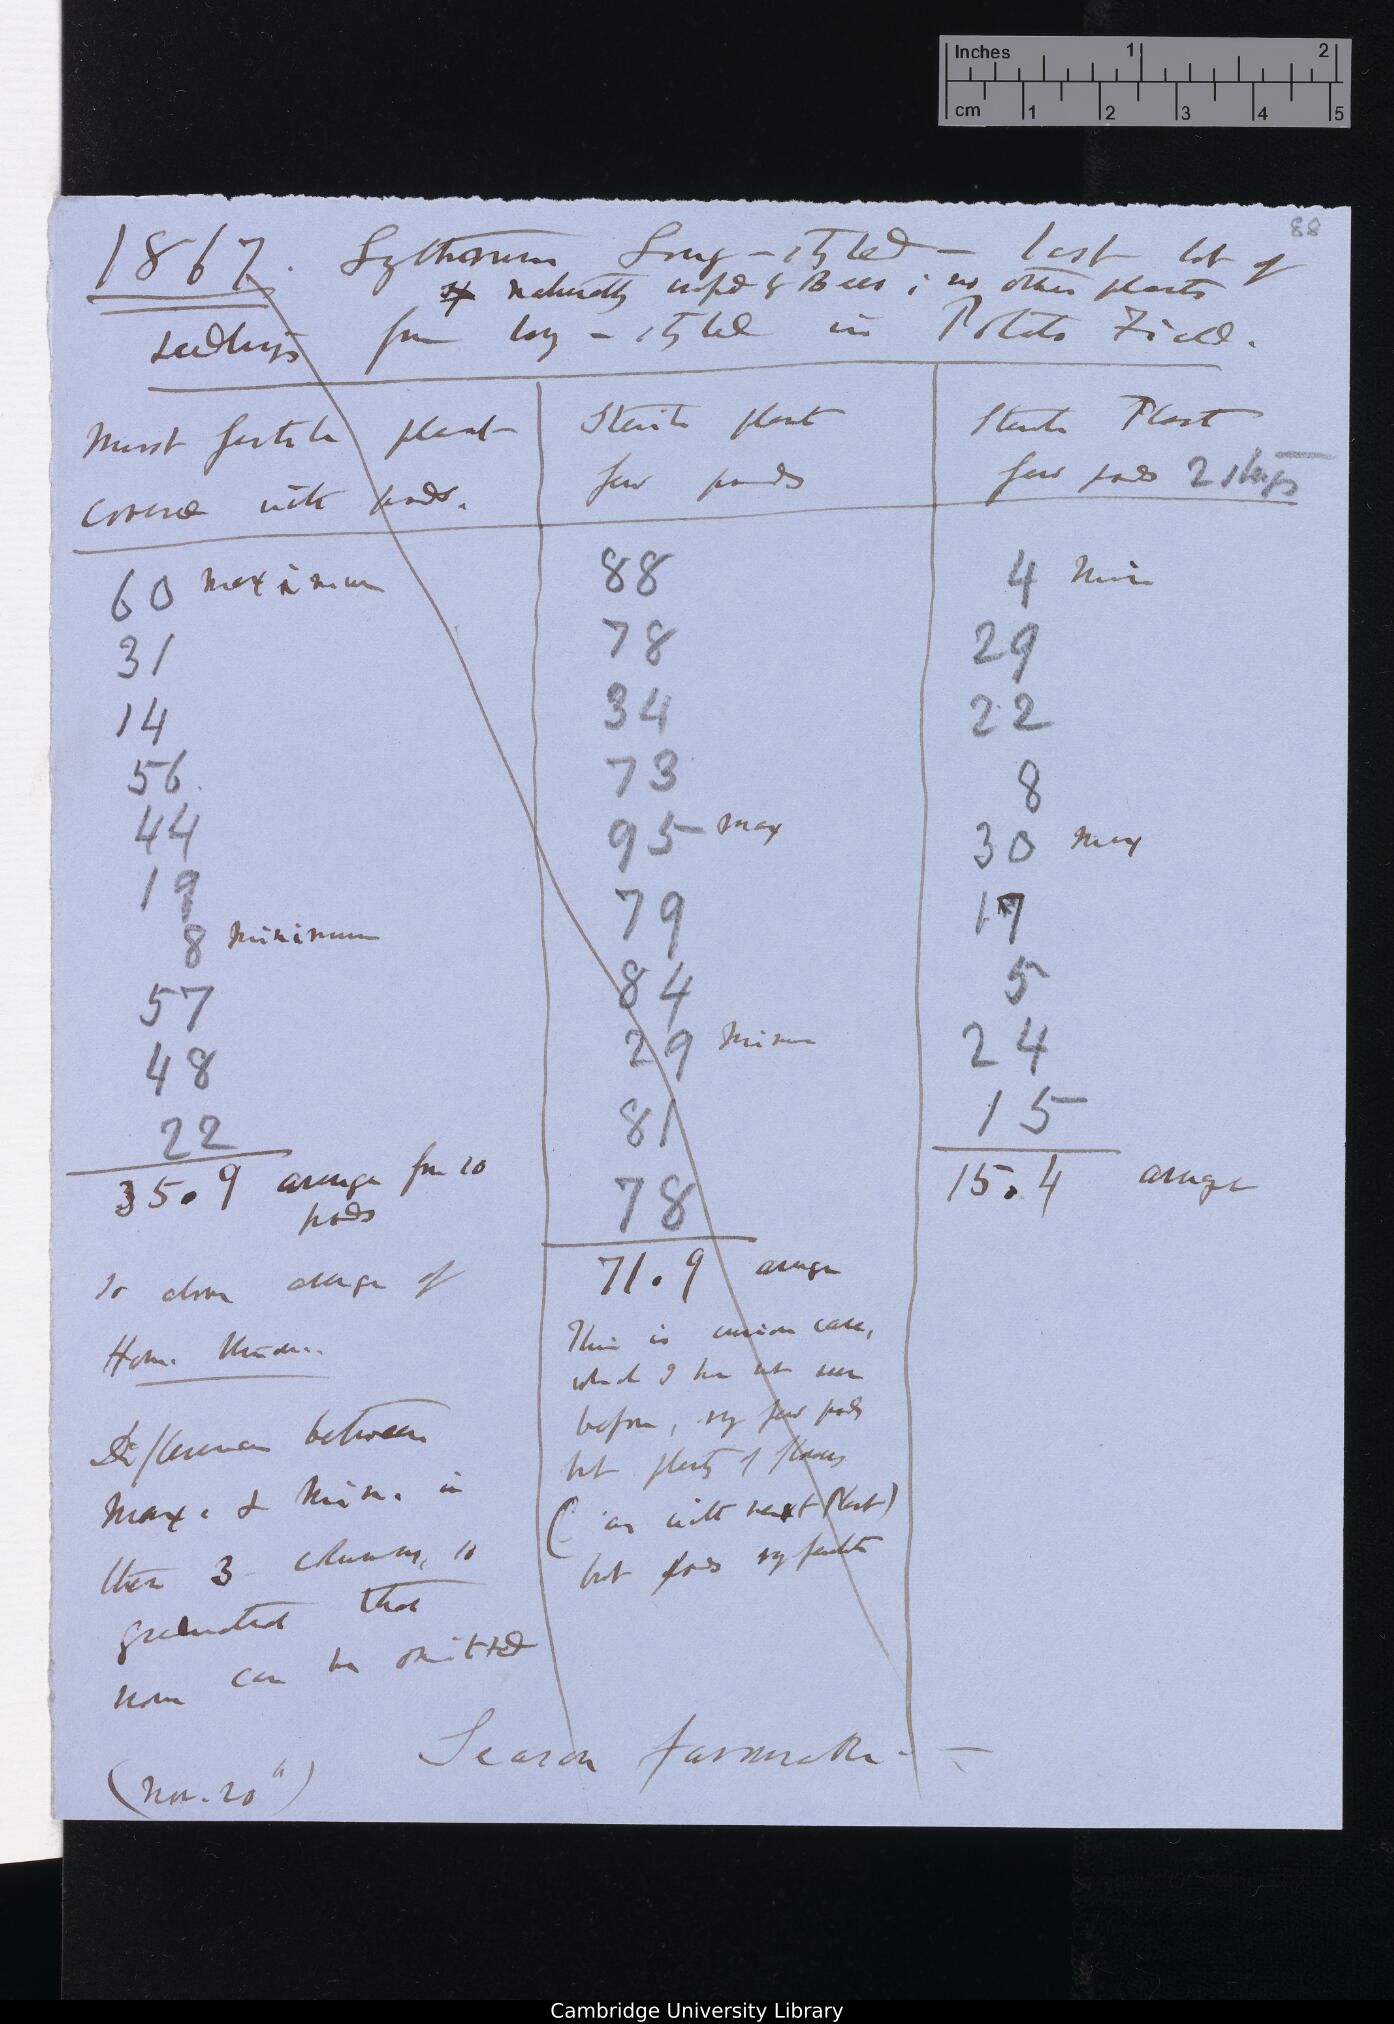 Inches 1 2
cm 1 2 3 4 5
88
1867. Lythrum Long-styled — last lot of
naturally by Bees; no other plants
seedlings from long-styled in Potato Field.
Most fertile plant
covered with pods.
60 maximum
31
14
56.
44
19
8 minimum
57
48
22
35.9 average from 10
pods
So above average of
Difference between
Max. & Min. in
these 3 columns, so
graduated that
none can be omitted
(Nov. 20th)
Sterile plant
few pods
88
78
34
73
95 max
79
84
29 Minim
81
78
71.9 average
This is curious case,
which I have not seen
before, very few pods
but plenty of flowers
(as with next Plant)
but pods very fertile
Sterile Plant
few pods 2 sterys
4 Min
29
22
8
30 max
17
5
24
15
15.4 average
Season favourable. —
Cambridge University Library